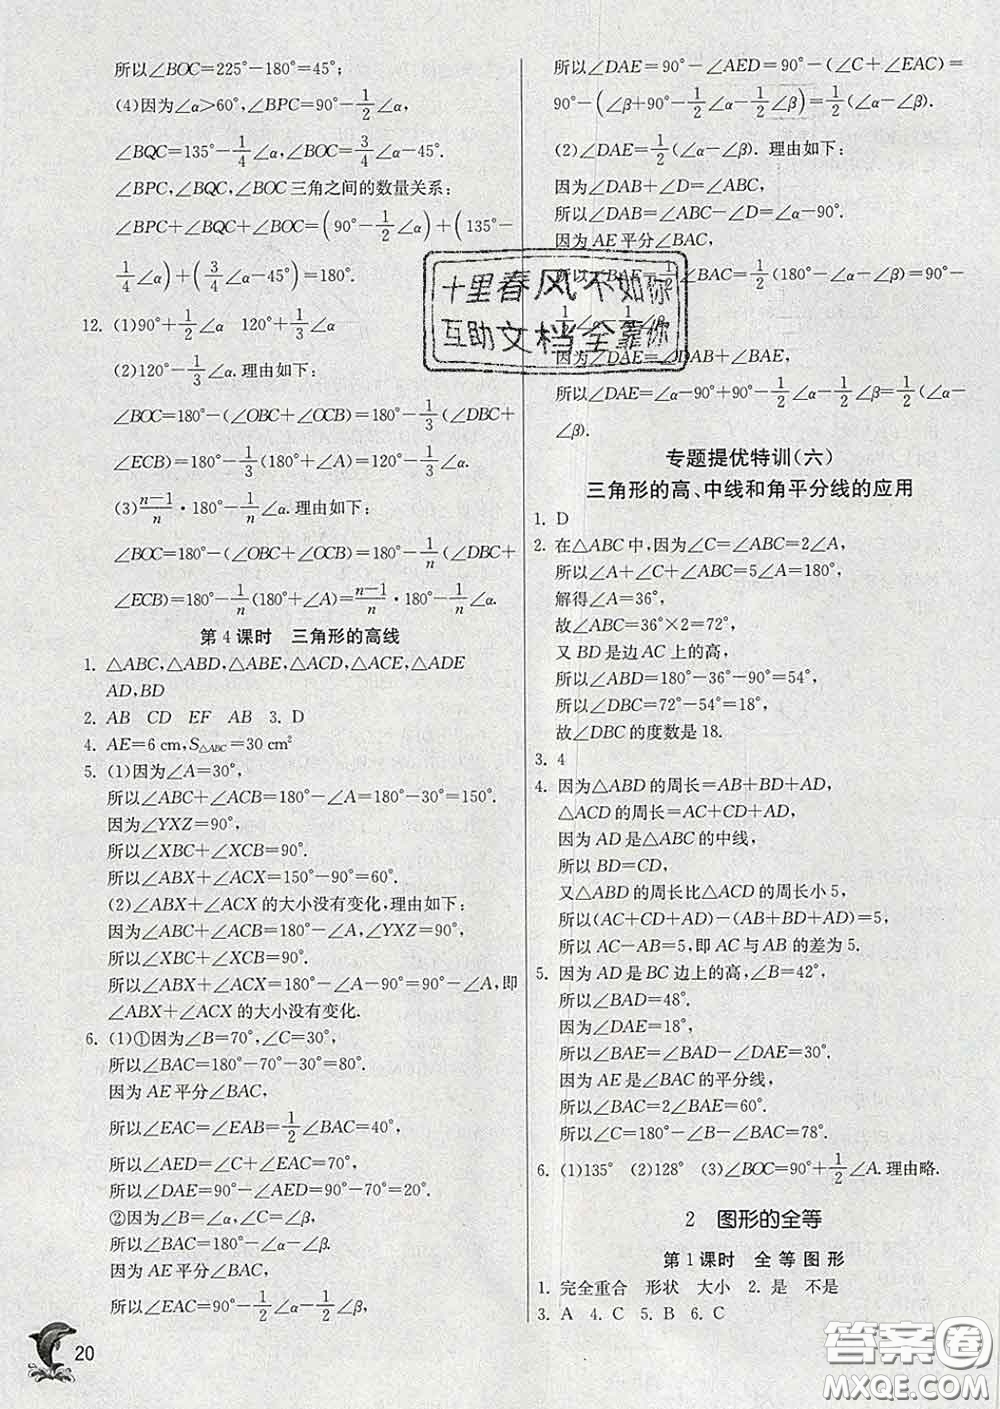 所以∠BOC=225°-180°=45°;
(4)因为∠α>60°,∠BPC=90°-1/2∠α,
∠BQC=135°-1/4∠α,∠BOC=3/4∠α-45°.
∠BPC,∠BQC,∠BOC三角之间的数量关系:
∠BPC+∠BQC+∠BOC=(90°-1/2∠α)+(135°-
1/4∠α)+(3/4∠α-45°)=180°.
12. (1)90°+1/2∠α 120°+1/3∠α
(2)120°-1/3∠α.理由如下:
∠BOC=180°-(∠OBC+∠OCB)=180°-1/3(∠DBC+
∠ECB)=180°-1/3(180°+∠A)=120°-1/3∠α.
(3)n-1/n·180°-1/n∠α.理由如下:
∠BOC=180°-(∠OBC+∠OCB)=180°-1/n(∠DBC+
∠ECB)=180°-1/n(180°+∠A)=n-1/n·180°-1/n∠α.
第4课时 三角形的高线
1. △ABC,△ABD,△ABE,△ACD,△ACE,△ADE
AD,BD
2. AB CD EF AB 3. D
4. AE=6 cm,S△ABC=30 cm²
5. (1)因为∠A=30°,
所以∠ABC+∠ACB=180°-∠A=180°-30°=150°.
因为∠YXZ=90°,
所以∠XBC+∠XCB=90°.
所以∠ABX+∠ACX=150°-90°=60°.
(2)∠ABX+∠ACX的大小没有变化,理由如下:
因为∠ABC+∠ACB=180°-∠A,∠YXZ=90°,
所以∠XBC+∠XCB=90°.
所以∠ABX+∠ACX=180°-∠A-90°=90°-∠A,即
∠ABX+∠ACX的大小没有变化.
6. (1)①因为∠B=70°,∠C=30°,
所以∠BAC=180°-70°-30°=80°.
因为AE平分∠BAC,
所以∠EAC=∠EAB=1/2∠BAC=40°,
所以∠AED=∠C+∠EAC=70°,
所以∠DAE=90°-∠AED=90°-70°=20°.
②因为∠B=∠α,∠C=∠β,
所以∠BAC=180°-∠α-∠β.
因为AE平分∠BAC,
所以∠EAC=90°-1/2∠α-1/2∠β,
20
所以∠DAE=90°-∠AED=90°-(∠C+∠EAC)=
90°-(∠β+90°-1/2∠α-1/2∠β)=1/2(∠α-∠β).
(2)∠DAE=1/2(∠α-∠β). 理由如下:
因为∠DAB+∠D=∠ABC,
所以∠DAB=∠ABC-∠D=∠α-90°.
因为AE平分∠BAC,
所以∠BAE=1/2∠BAC=1/2(180°-∠α-∠β)=90°-
1/2∠α-1/2∠β.
因为∠DAE=∠DAB+∠BAE,
所以∠DAE=∠α-90°+90°-1/2∠α-1/2∠β=1/2(∠α-
∠β).
十里春风不如你
互助文档全靠你
专题提优特训(六)
三角形的高、中线和角平分线的应用
1. D
2. 在△ABC中,因为∠C=∠ABC=2∠A,
所以∠A+∠C+∠ABC=5∠A=180°,
解得∠A=36°,
故∠ABC=36°×2=72°,
又BD是边AC上的高,
所以∠ABD=180°-36°-90°=54°,
所以∠DBC=72°-54°=18°,
故∠DBC的度数是18.
3. 4
4. 因为△ABD的周长=AB+BD+AD,
△ACD的周长=AC+CD+AD,
因为AD是△ABC的中线,
所以BD=CD,
又△ABD的周长比△ACD的周长小5,
所以(AC+CD+AD)-(AB+BD+AD)=5,
所以AC-AB=5,即AC与AB的差为5.
5. 因为AD是BC边上的高,∠B=42°,
所以∠BAD=48°.
因为∠DAE=18°,
所以∠BAE=∠BAD-∠DAE=30°.
因为AE是∠BAC的平分线,
所以∠BAC=2∠BAE=60°.
所以∠C=180°-∠B-∠BAC=78°.
6. (1)135° (2)128° (3)∠BOC=90°+1/2∠A.理由略.
2 图形的全等
第1课时 全等图形
1. 完全重合 形状 大小 2. 是 不是
3. A 4. C 5. B 6. C
答案圈
MXQE.COM